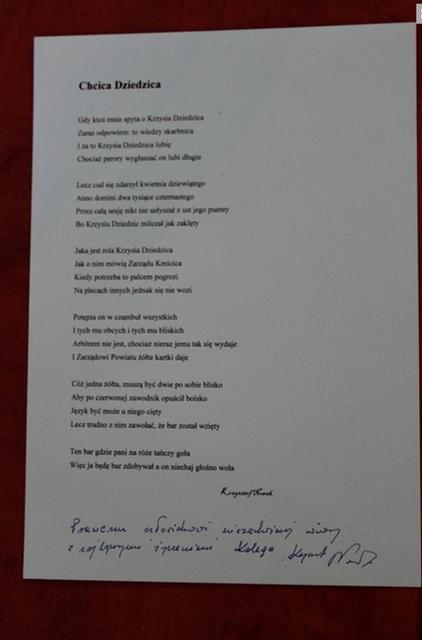 Chcica Dziedzica
Gdy ktoś mnie spyta o Krzysia Dziedzica
Zaraz odpowiem: to wiedzy skarbnica
I za to Krzysia Dziedzica lubię
Chociaż perory wygłaszać on lubi długie
Lecz cud się zdarzył kwietnia dziewiątego
Anno domini dwa tysiące czternastego
Przez całą sesję nikt nie usłyszał z ust jego puenty
Bo Krzysiu Dziedzic milczał jak zaklęty
Jaka jest rola Krzysia Dziedzica
Jak o nim mówią Zarządu Kmicica
Kiedy potrzeba to palcem pogrozi
Na plecach innych jednak się nie wozi
Potępia on w czambuł wszystkich
I tych mu obcych i tych mu bliskich
Arbitrem nie jest, chociaż nieraz jemu tak się wydaje
I Zarządowi Powiatu żółte kartki daje
Cóż jedna żółta, muszą być dwie po sobie blisko
Aby po czerwonej zawodnik opuścił boisko
Język być może u niego cięty
Lecz trudno z nim zawołać, że bar został wzięty
Ten bar gdzie pani na róże tańczy goła
Więc ja będę bar zdobywał a on niechaj głośno woła
Krzysztof Nosek
Prawemu człowiekowi niezachwianej wiary
z najlepszymi życzeniami Kolega